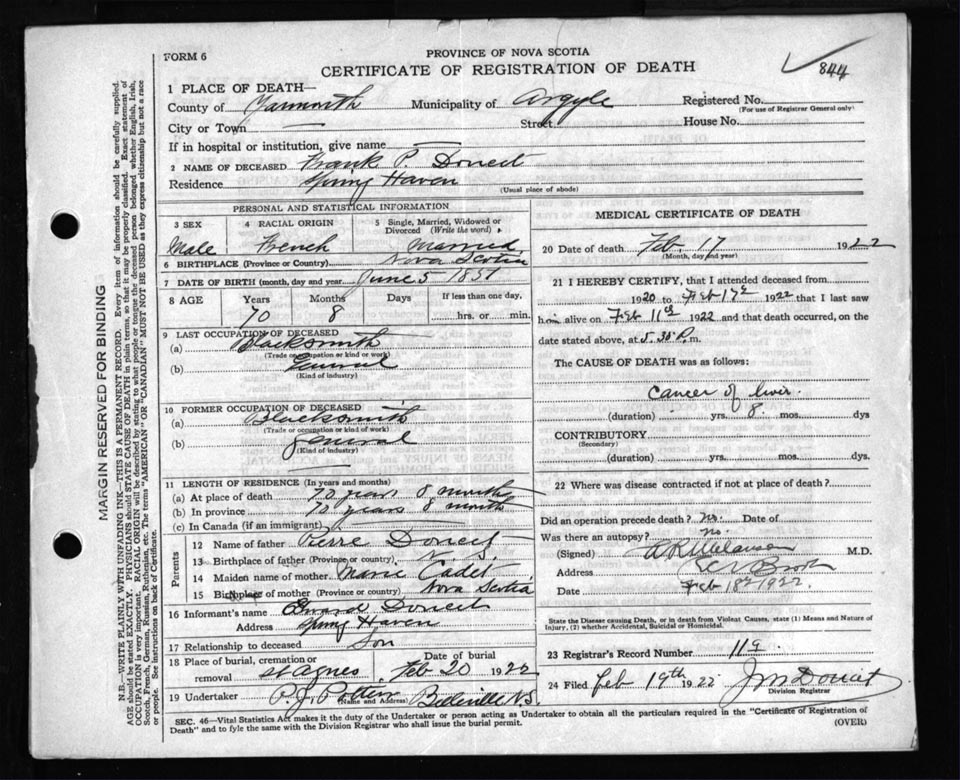 FORM 6
PROVINCE OF NOVA SCOTIA
CERTIFICATE OF REGISTRATION OF DEATH
844
1 PLACE OF DEATH—
County of Yarmouth Municipality of Argyle Registered No.
(For use of Registrar General only)
City or Town Street House No.
If in hospital or institution, give name
2 NAME OF DECEASED Frank P. Doucet
Residence Spring Haven
(Usual place of abode)
PERSONAL AND STATISTICAL INFORMATION
3 SEX 4 RACIAL ORIGIN 5 Single, Married, Widowed or Divorced (Write the word)
Male French Married
6 BIRTHPLACE (Province or Country) Nova Scotia
7 DATE OF BIRTH (month, day and year) June 5 1851
8 AGE Years Months Days If less than one day,
70 8 hrs. or min.
9 LAST OCCUPATION OF DECEASED
(a) Blacksmith
(Trade or occupation or kind of work)
(b) General
(Kind of industry)
10 FORMER OCCUPATION OF DECEASED
(a) Blacksmith
(Trade or occupation or kind of work)
(b) general
(Kind of industry)
11 LENGTH OF RESIDENCE (In years and months)
(a) At place of death 70 years 8 months
(b) In province 70 years 8 month
(c) In Canada (if an immigrant)
Parents
12 Name of father Pierre Doucet
13 Birthplace of father (Province or country) N.S.
14 Maiden name of mother Marie Cadet
15 Birthplace of mother (Province or country) Nova Scotia
16 Informant's name Doucet
Address Spring Haven
17 Relationship to deceased Son
18 Place of burial, cremation or removal St Agnes Date of burial Feb 20 1922
19 Undertaker P. J. Pottier Belleville N.S.
(Name and Address)
MEDICAL CERTIFICATE OF DEATH
20 Date of death Feb 17 1922
(Month, day and year)
21 I HEREBY CERTIFY, that I attended deceased from
1920 to Feb 17th 1922 that I last saw
him alive on Feb 11th 1922 and that death occurred, on the
date stated above, at 5.30 P.m.
The CAUSE OF DEATH was as follows:
Cancer of liver
(duration) yrs. 8 mos. dys
CONTRIBUTORY
(Secondary)
(duration) yrs. mos. dys
22 Where was disease contracted if not at place of death?
Did an operation precede death? No. Date of
Was there an autopsy? no.
(Signed) M.D.
Address
Date Feb 18th 1922
State the Disease causing Death, or in death from Violent Causes, state (1) Means and Nature of Injury, (2) whether Accidental, Suicidal or Homicidal.
23 Registrar's Record Number 119
24 Filed Feb 19th 1922 J M Doucet
Division Registrar
SEC. 46—Vital Statistics Act makes it the duty of the Undertaker or person acting as Undertaker to obtain all the particulars required in the "Certificate of Registration of
Death" and to fyle the same with the Division Registrar who shall issue the burial permit.
(OVER)
MARGIN RESERVED FOR BINDING
N.B.—WRITE PLAINLY WITH UNFADING INK—THIS IS A PERMANENT RECORD. Every item of information should be carefully supplied.
AGE should be stated EXACTLY. PHYSICIANS should STATE CAUSE OF DEATH in plain terms, so that it may be properly classified. Exact statement of
OCCUPATION is very important. RACIAL ORIGIN will be described by stating to what people or tongue the deceased person belonged whether English, Irish,
Scotch, French, German, Russian, Ruthenian, etc. The terms "AMERICAN" OR "CANADIAN" MUST NOT BE USED as they express citizenship but not a race
or people. See instructions on back of Certificate.